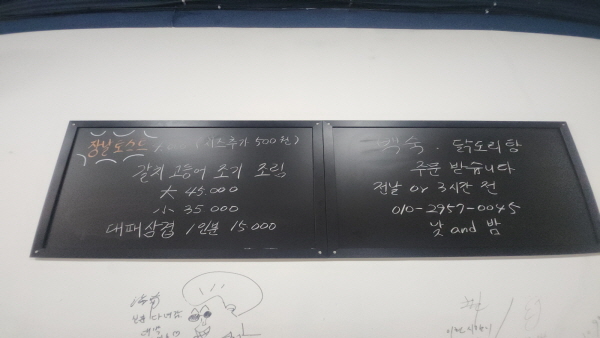 장날토스트 (치즈추가 500원)
갈치 고등어 조기 조림
大 45.000
小 35 000
대패삼겹 1인분 15.000
백숙 · 닭도리탕
주문 받습니다
전날 or 3시간 전
010-2957-0045
낮 and 밤